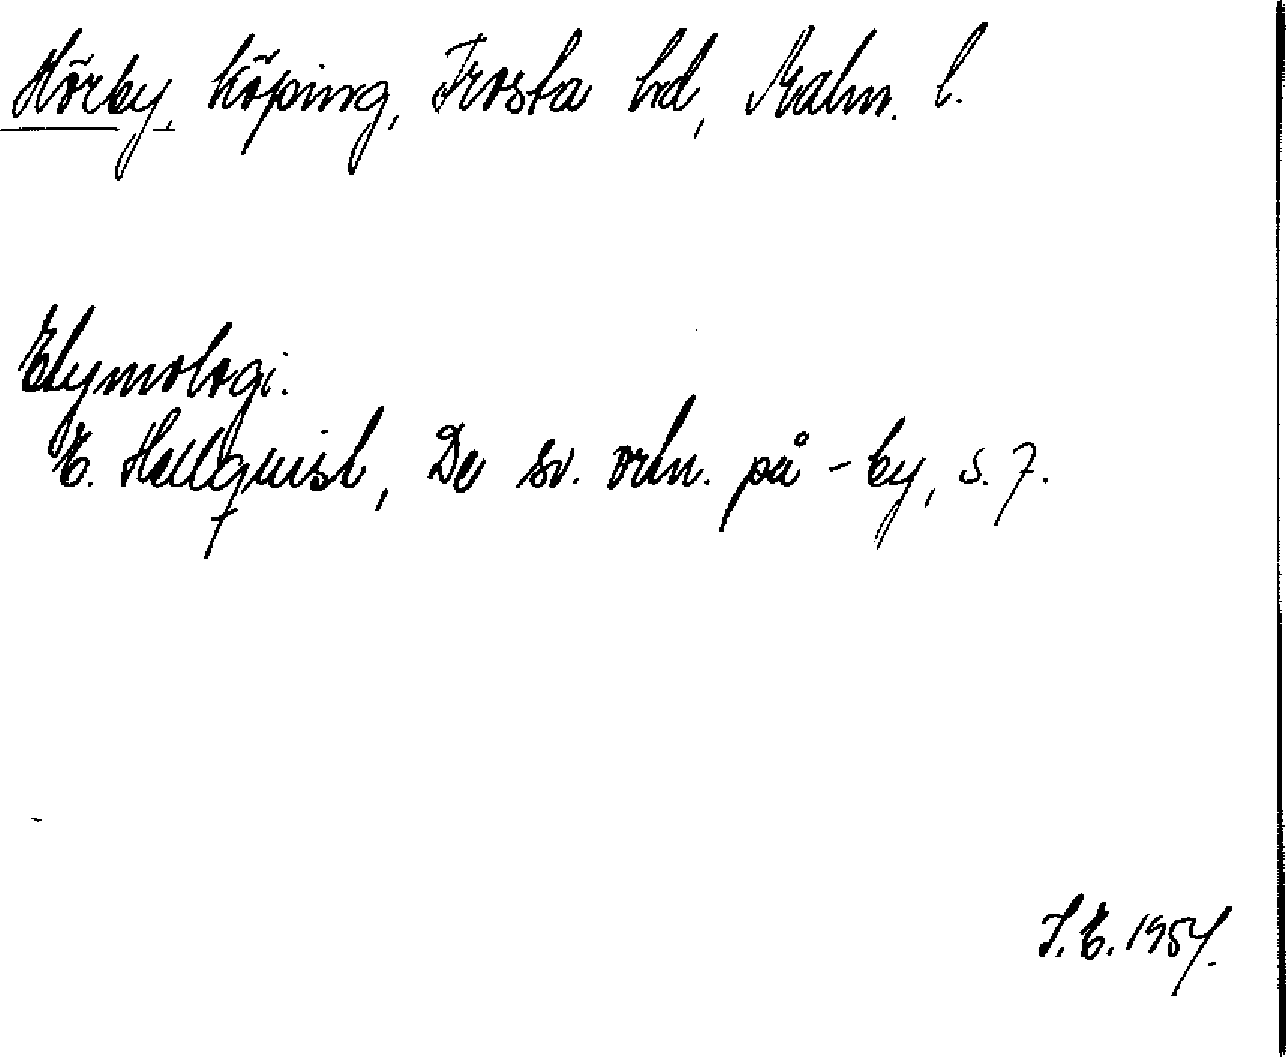 Hörby, köping, Frosta hd, Malm. l.
Etymologi.
E. Hellquist, De sv. ortn. på -by, s. 7.
S.E. 1954.